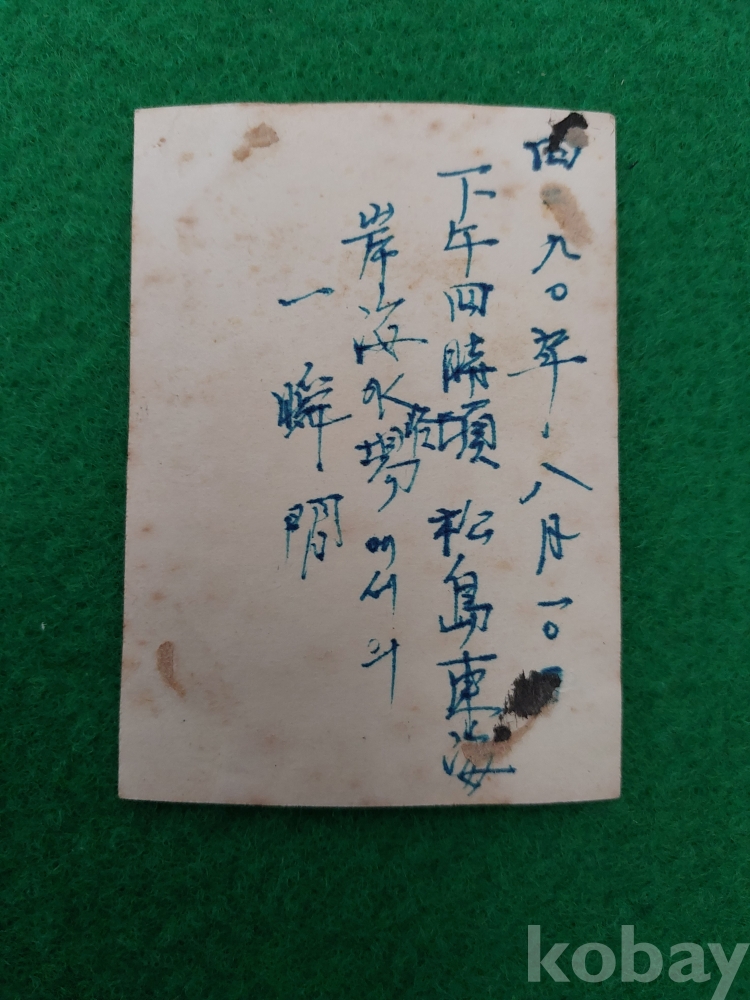 四二九〇年 八月 一〇日
下午四時頃 松島東海
岸海水浴場에서의
一瞬間
kobay